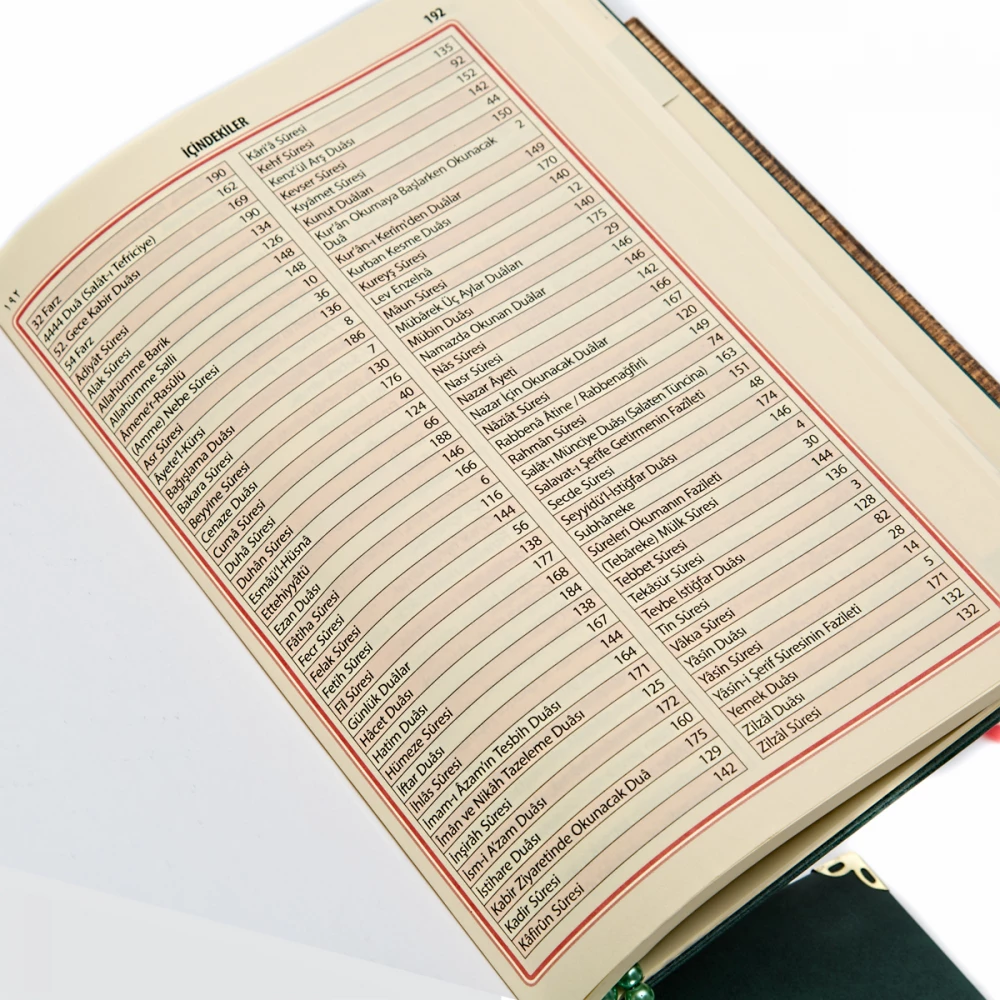 192
١٩٢
İÇİNDEKİLER
32 Farz 190
4444 Duâ (Salât-ı Tefriciye) 162
52. Gece Kabir Duâsı 169
54 Farz 190
Âdiyât Sûresi 134
Alak Sûresi 126
Allahümme Barik 148
Allahümme Salli 148
Âmene'r-Rasûlü 10
(Amme) Nebe Sûresi 36
Asr Sûresi 136
Âyete'l-Kürsi 8
Bağışlama Duâsı 186
Bakara Sûresi 7
Beyyine Sûresi 130
Cenaze Duâsı 176
Cumâ Sûresi 40
Duhâ Sûresi 124
Duhân Sûresi 66
Esmâü'l-Hüsnâ 188
Ettehiyyâtü 146
Ezan Duâsı 166
Fâtiha Sûresi 6
Fecr Sûresi 116
Felak Sûresi 144
Fetih Sûresi 56
Fîl Sûresi 138
Günlük Duâlar 177
Hâcet Duâsı 168
Hatim Duâsı 184
Hümeze Sûresi 138
İftar Duâsı 167
İhlâs Sûresi 144
İmam-ı Âzam'ın Tesbih Duâsı 164
Îmân ve Nikâh Tazeleme Duâsı 171
İnşirâh Sûresi 125
İsm-i A'zam Duâsı 172
İstihare Duâsı 160
Kabir Ziyaretinde Okunacak Duâ 175
Kadir Sûresi 129
Kâfirûn Sûresi 142
Kâri'â Sûresi 135
Kehf Sûresi 92
Kenz'ül Arş Duâsı 152
Kevser Sûresi 142
Kıyâmet Sûresi 44
Kunut Duâları 150
Kur'ân Okumaya Başlarken Okunacak 2
Duâ
Kur'ân-ı Kerim'den Duâlar 149
Kurban Kesme Duâsı 170
Kureyş Sûresi 140
Lev Enzelnâ 12
Mâun Sûresi 140
Mübârek Üç Aylar Duâları 175
Mübin Duâsı 29
Namazda Okunan Duâlar 146
Nâs Sûresi 146
Nasr Sûresi 142
Nazar Âyeti 166
Nazar İçin Okunacak Duâlar 167
Nâziât Sûresi 120
Rabbenâ Âtine / Rabbenağfirli 149
Rahmân Sûresi 74
Salât-ı Münciye Duâsı (Salaten Tüncina) 163
Salavat-ı Şerife Getirmenin Fazîleti 151
Secde Sûresi 48
Seyyidü'l-İstiğfar Duâsı 174
Subhâneke 146
Sûreleri Okumanın Fazîleti 4
(Tebâreke) Mülk Sûresi 30
Tebbet Sûresi 144
Tekâsür Sûresi 136
Tevbe İstiğfar Duâsı 3
Tin Sûresi 128
Vâkıa Sûresi 82
Yâsîn Duâsı 28
Yâsîn Sûresi 14
Yâsîn-i Şerîf Sûresinin Fazîleti 5
Yemek Duâsı 171
Zilzâl Duâsı 132
Zilzâl Sûresi 132